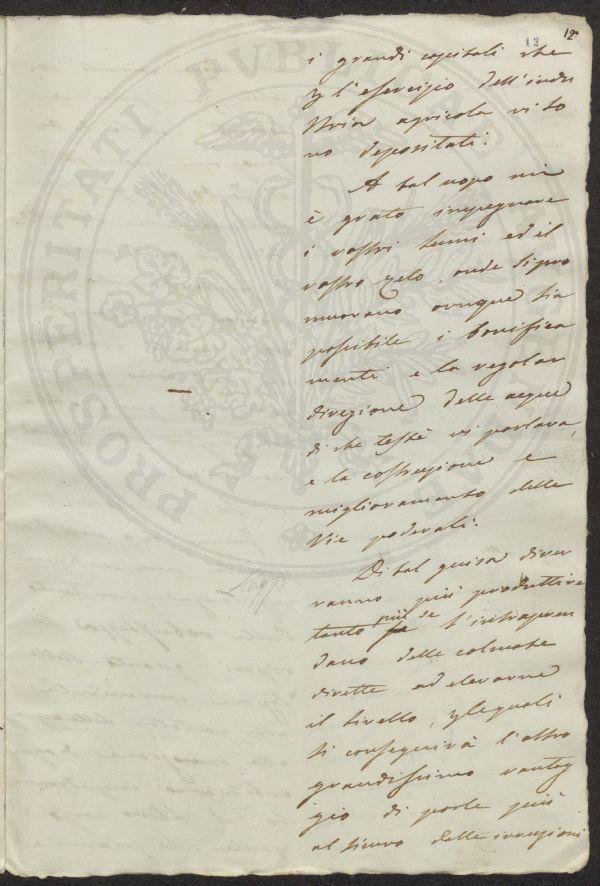 12
13
i grandi capitali che
p l'esercizio dell'indu
stria agricola vi so
no depositati.
A tal uopo mi
è grato impegnare
i vostri lumi ed il
vostro zelo, onde si pro
muovano ovunque sia
possibile i bonifica
menti e la regolar
direzione delle acque
di che testè vi parlava,
e la costruzione e
miglioramento delle
Vie poderali.
Di tal guisa diver
ranno più produttive
tanto più se s'intrapren
dano delle colmate
dirette ad elevarne
il livello, p le quali
si conseguirà l'altro
grandissimo vantag
gio di porle più
al sicuro delle irruzioni
PROSPERITATI PVBLICAE